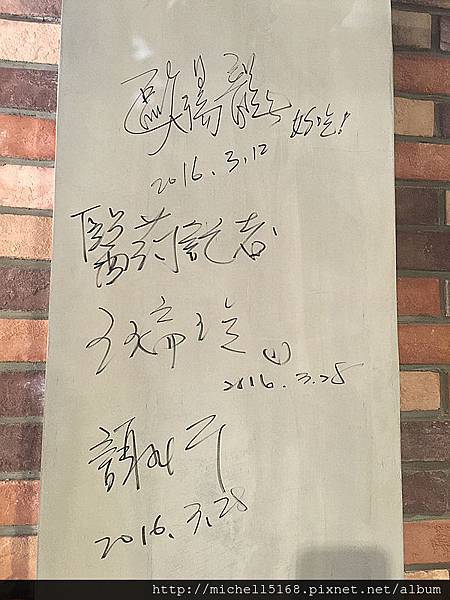 歐陽龍 好吃!
2016.3.12
醫药記者
王瑞瑄
2016.3.28
謝
2016.3.28
http://michell5168.pixnet.net/album